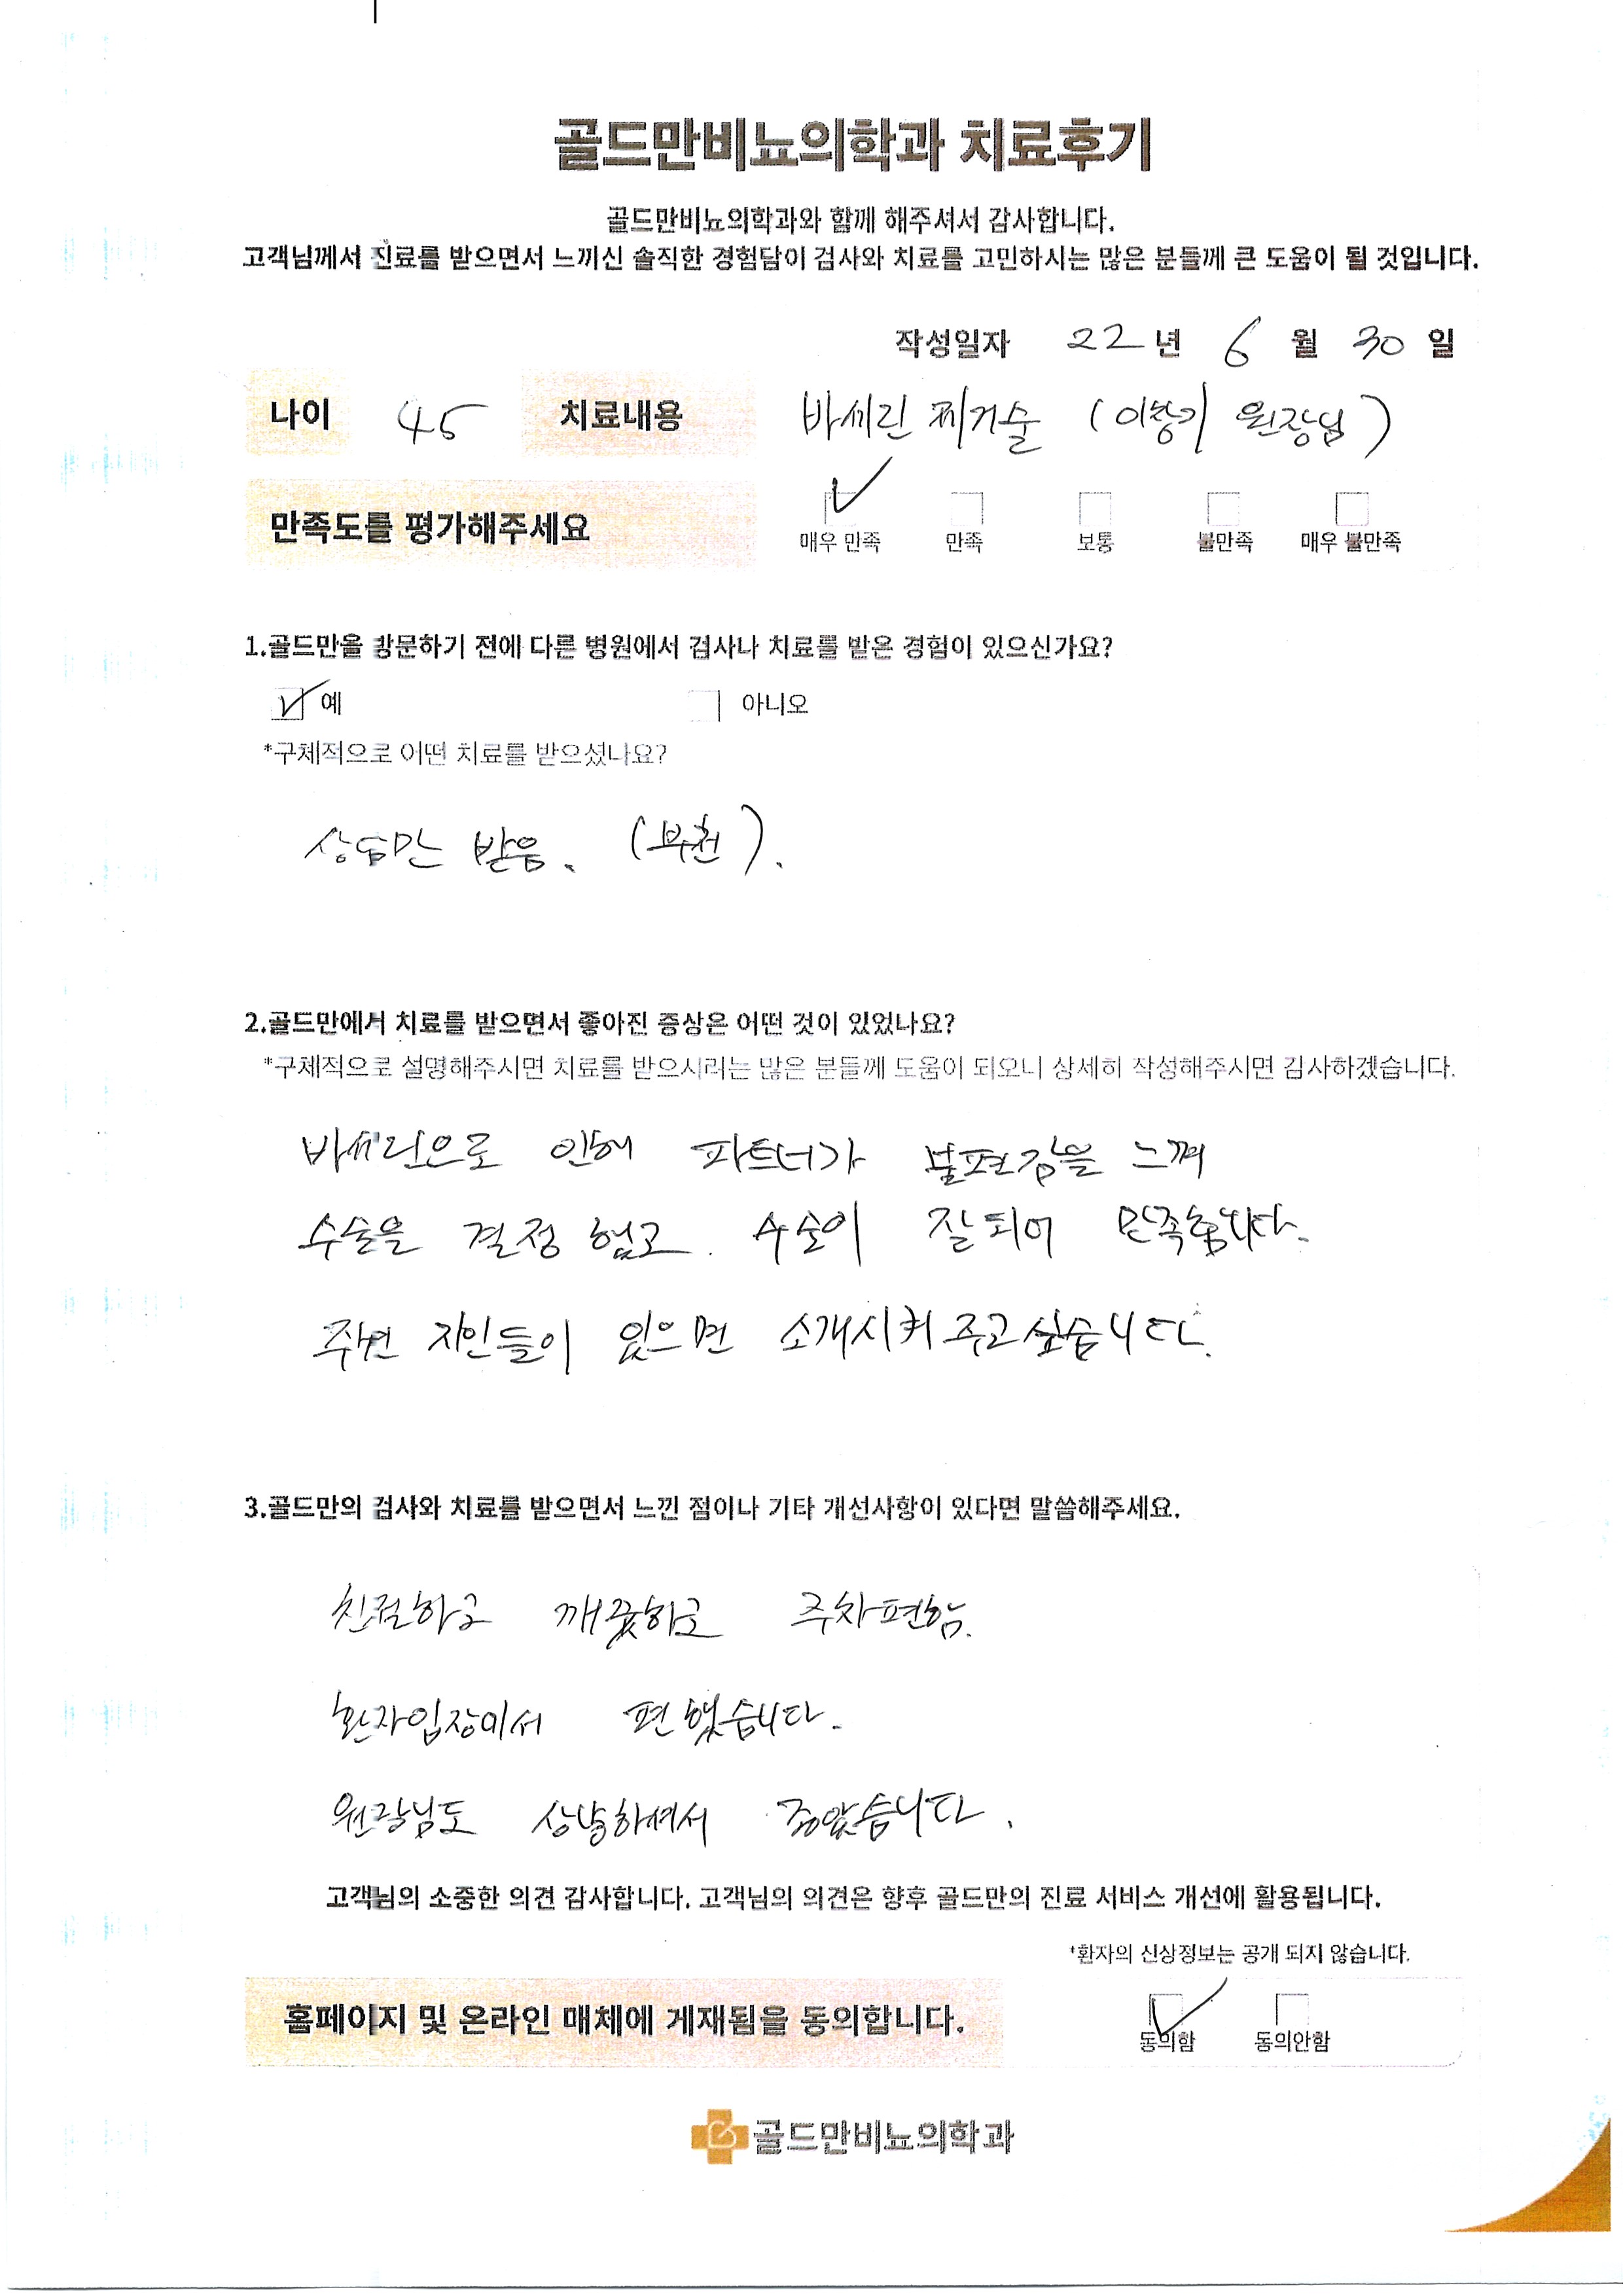 골드만비뇨의학과 치료후기
골드만비뇨의학과와 함께 해주셔서 감사합니다.
고객님께서 진료를 받으면서 느끼신 솔직한 경험담이 검사와 치료를 고민하시는 많은 분들께 큰 도움이 될 것입니다.
작성일자 22 년 6 월 30 일
나이 45 치료내용 바세린 제거술 (이창기 원장님)
만족도를 평가해주세요
매우 만족 만족 보통 불만족 매우 불만족
1.골드만을 방문하기 전에 다른 병원에서 검사나 치료를 받은 경험이 있으신가요?
예 아니오
*구체적으로 어떤 치료를 받으셨나요?
상담만 받음. (부천).
2.골드만에서 치료를 받으면서 좋아진 증상은 어떤 것이 있었나요?
*구체적으로 설명해주시면 치료를 받으시려는 많은 분들께 도움이 되오니 상세히 작성해주시면 감사하겠습니다.
바세린으로 인해 파트너가 불편감을 느껴
수술을 결정 했고. 수술이 잘되어 만족합니다.
주변 지인들이 있으면 소개시켜 주고싶습니다.
3.골드만의 검사와 치료를 받으면서 느낀 점이나 기타 개선사항이 있다면 말씀해주세요.
친절하고 깨끗하고 주차편함.
환자입장에서 편했습니다.
원장님도 상냥하셔서 좋았습니다.
고객님의 소중한 의견 감사합니다. 고객님의 의견은 향후 골드만의 진료 서비스 개선에 활용됩니다.
*환자의 신상정보는 공개 되지 않습니다.
홈페이지 및 온라인 매체에 게재됨을 동의합니다.
동의함 동의안함
골드만비뇨의학과